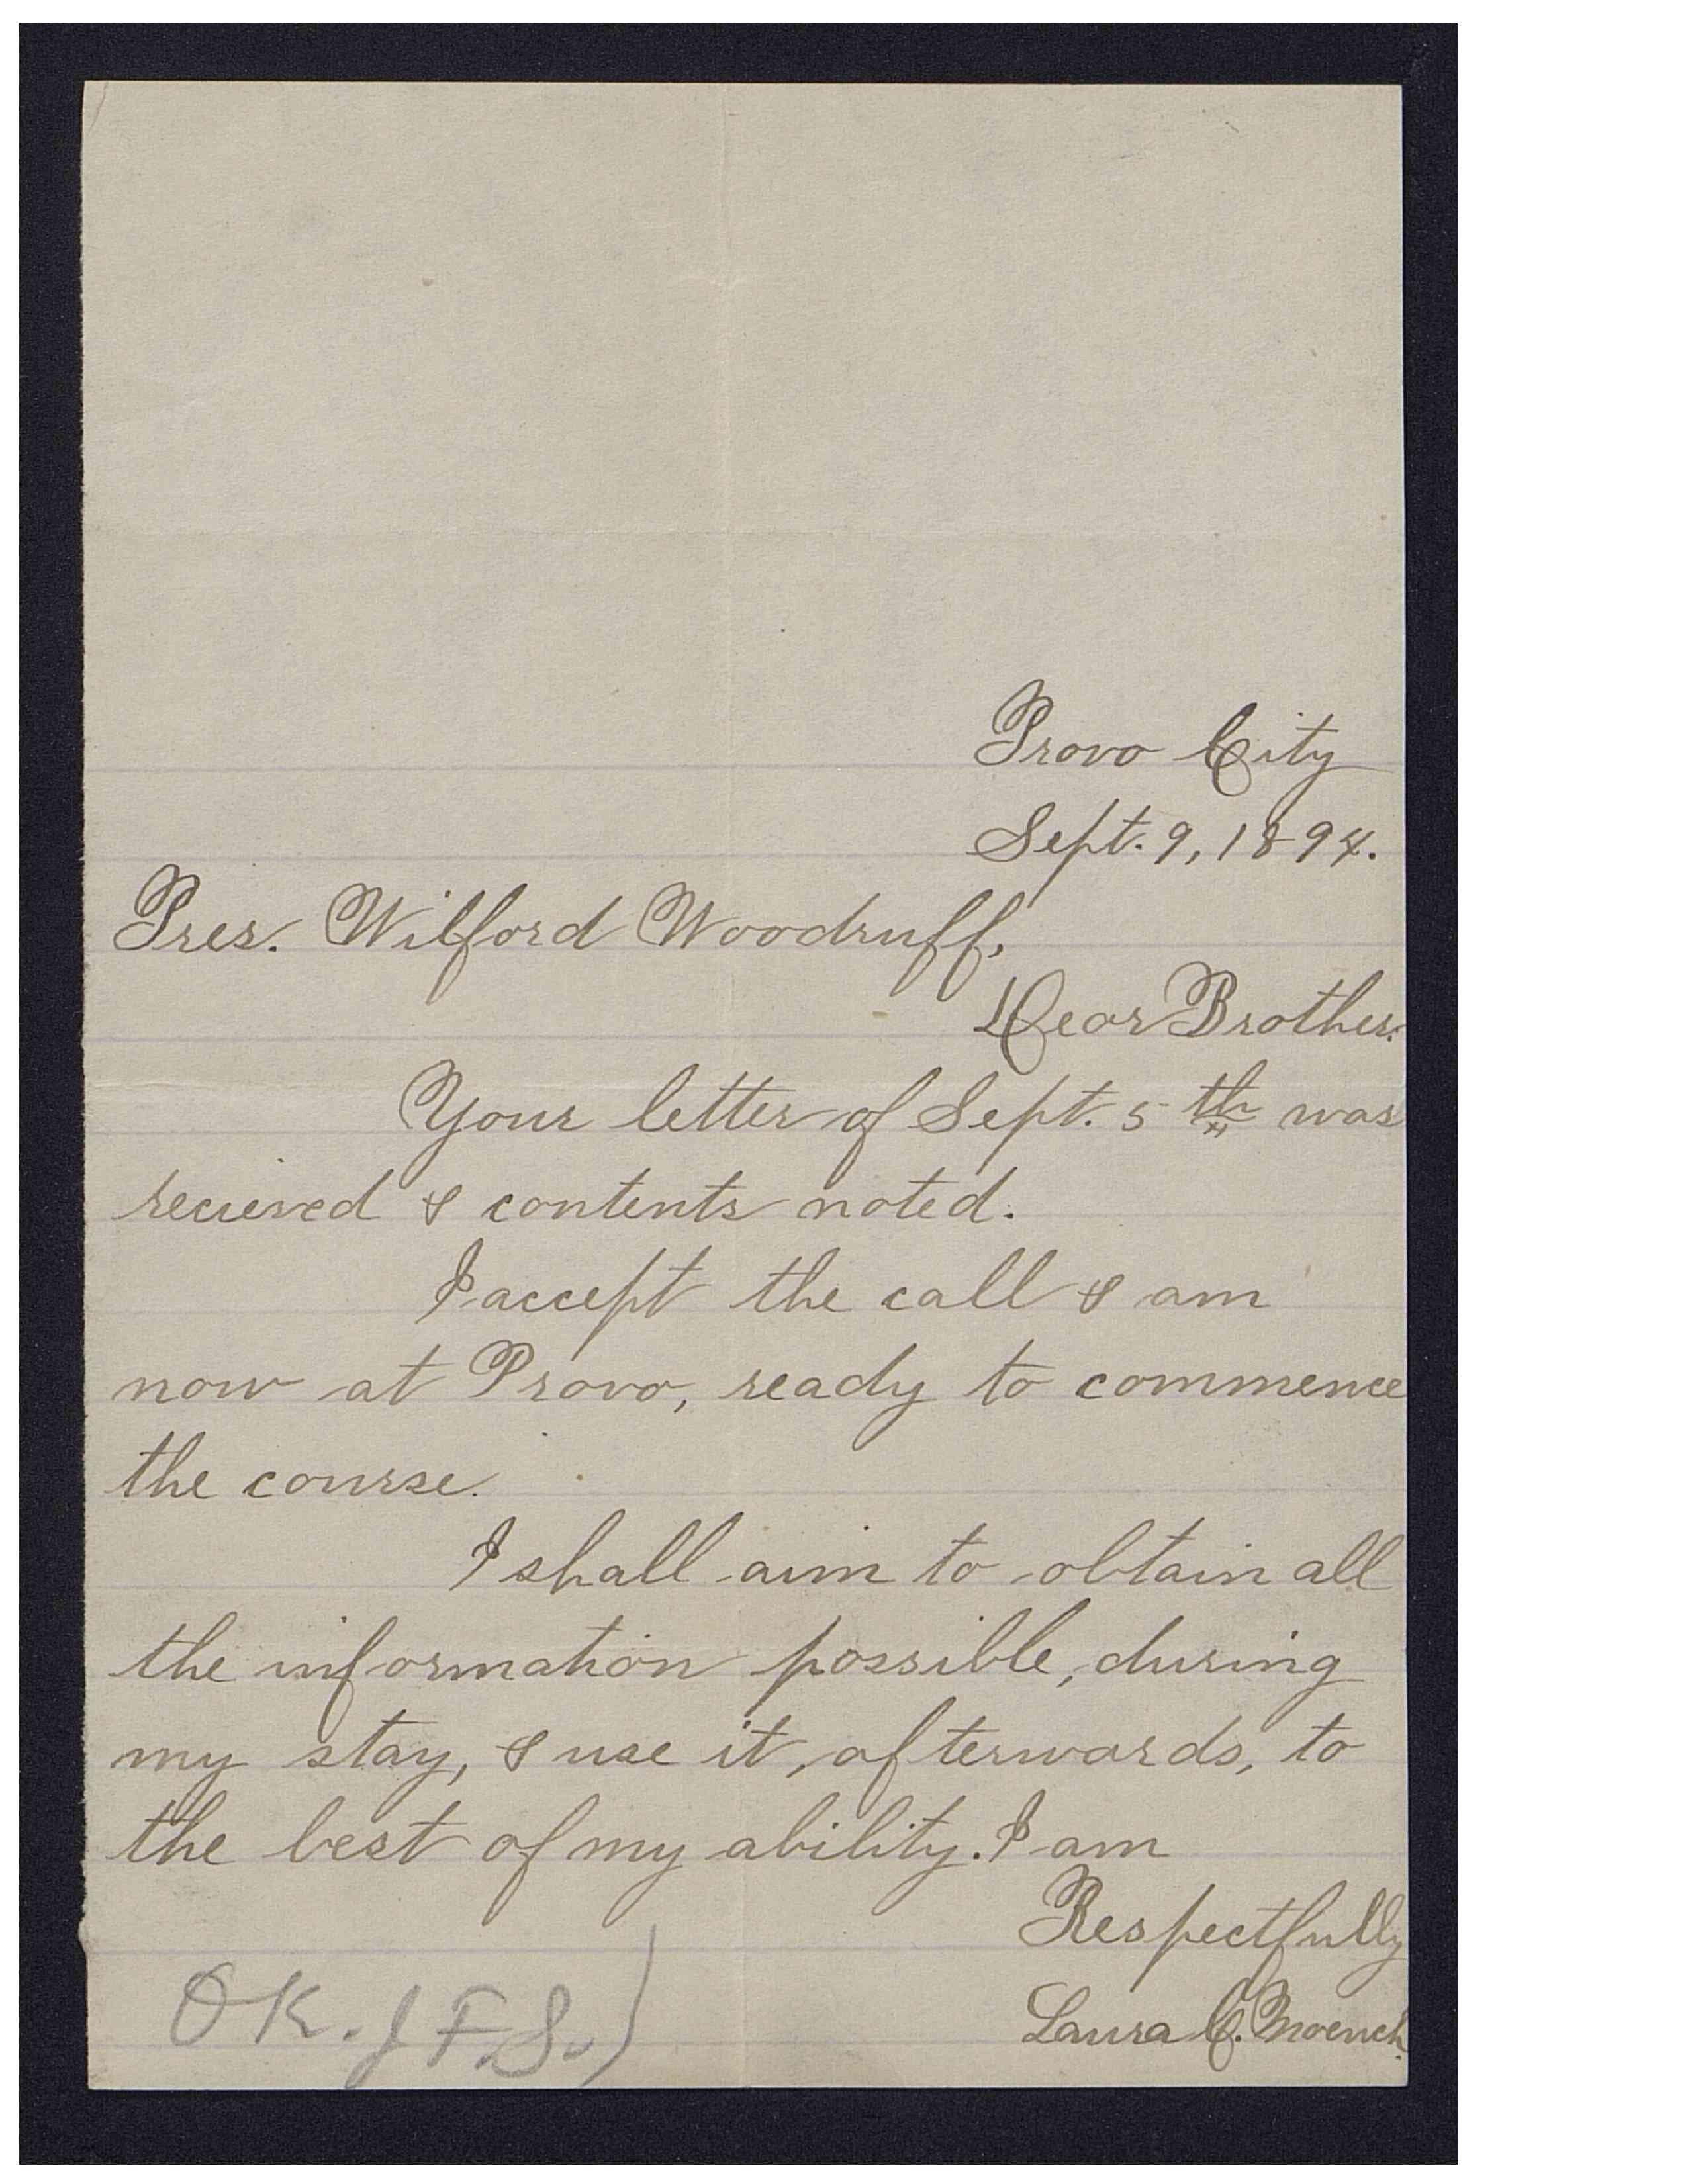 Provo City
Sept. 9, 1894.
Pres. Wilford Woodruff,
Dear Brother:
Your letter of Sept. 5th was
recieved & contents noted.
I accept the call & am
now at Provo, ready to commence
the course.
I shall aim to obtain all
the information possible, during
my stay, & use it, afterwards, to
the best of my ability. I am
Respectfully
Laura C. Moench.
OK. J F. S.)